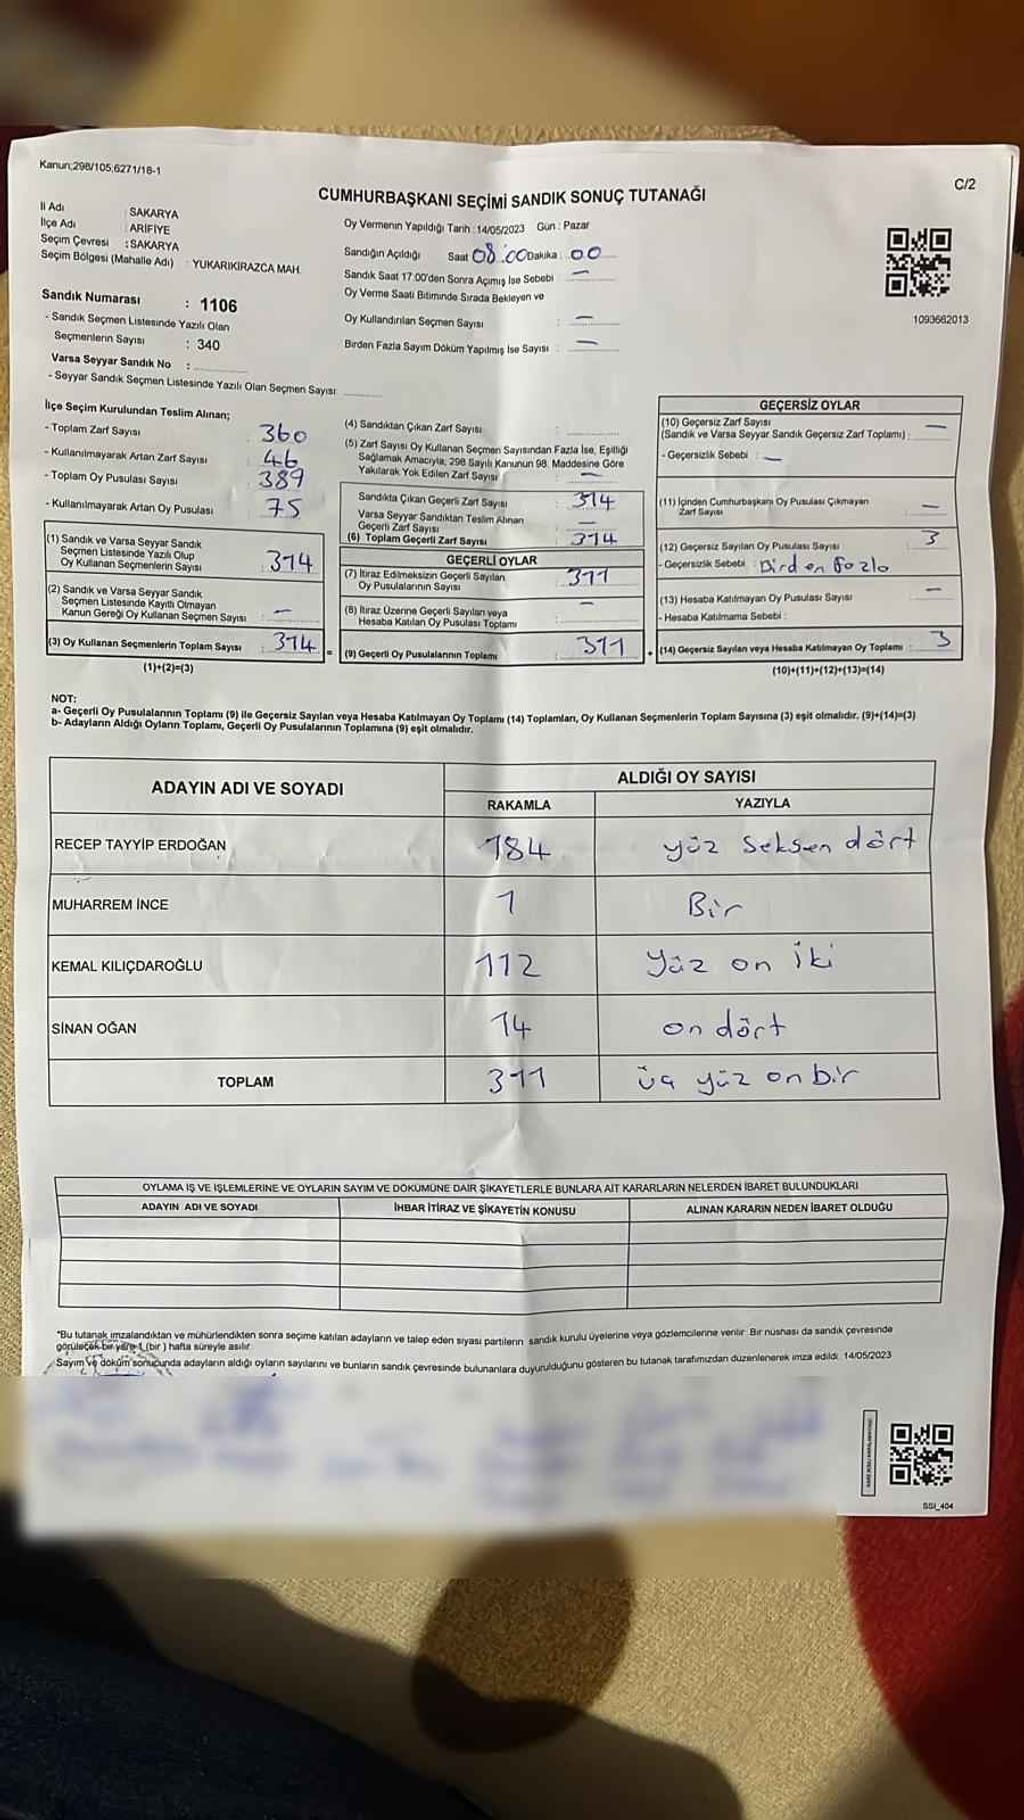 Kanun;298/105;6271/18-1
C/2
CUMHURBAŞKANI SEÇİMİ SANDIK SONUÇ TUTANAĞI
İl Adı : SAKARYA
İlçe Adı : ARİFİYE
Seçim Çevresi : SAKARYA
Seçim Bölgesi (Mahalle Adı) : YUKARIKIRAZCA MAH.
Sandık Numarası : 1106
- Sandık Seçmen Listesinde Yazılı Olan
Seçmenlerin Sayısı : 340
Varsa Seyyar Sandık No :
- Seyyar Sandık Seçmen Listesinde Yazılı Olan Seçmen Sayısı:
Oy Vermenin Yapıldığı Tarih : 14/05/2023 Gün : Pazar
Sandığın Açıldığı Saat 08:00 Dakika : 00
Sandık Saat 17:00'den Sonra Açımış İse Sebebi : —
Oy Verme Saati Bitiminde Sırada Bekleyen ve
Oy Kullandırılan Seçmen Sayısı : —
Birden Fazla Sayım Döküm Yapılmış İse Sayısı : —
1093662013
İlçe Seçim Kurulundan Teslim Alınan;
- Toplam Zarf Sayısı : 360
- Kullanılmayarak Artan Zarf Sayısı : 46
- Toplam Oy Pusulası Sayısı : 389
- Kullanılmayarak Artan Oy Pusulası : 75
(1) Sandık ve Varsa Seyyar Sandık
Seçmen Listesinde Yazılı Olup
Oy Kullanan Seçmenlerin Sayısı : 314
(2) Sandık ve Varsa Seyyar Sandık
Seçmen Listesinde Kayıtlı Olmayan
Kanun Gereği Oy Kullanan Seçmen Sayısı : —
(3) Oy Kullanan Seçmenlerin Toplam Sayısı : 314
(1)+(2)=(3)
(4) Sandıktan Çıkan Zarf Sayısı :
(5) Zarf Sayısı Oy Kullanan Seçmen Sayısından Fazla İse, Eşitliği
Sağlamak Amacıyla, 298 Sayılı Kanunun 98. Maddesine Göre
Yakılarak Yok Edilen Zarf Sayısı : —
Sandıkta Çıkan Geçerli Zarf Sayısı : 314
Varsa Seyyar Sandıktan Teslim Alınan
Geçerli Zarf Sayısı : —
(6) Toplam Geçerli Zarf Sayısı : 314
GEÇERLİ OYLAR
(7) İtiraz Edilmeksizin Geçerli Sayılan
Oy Pusulalarının Sayısı : 311
(8) İtiraz Üzerine Geçerli Sayılan veya
Hesaba Katılan Oy Pusulası Toplamı : —
(9) Geçerli Oy Pusulalarının Toplamı : 311
GEÇERSİZ OYLAR
(10) Geçersiz Zarf Sayısı
(Sandık ve Varsa Seyyar Sandık Geçersiz Zarf Toplamı) : —
- Geçersizlik Sebebi : —
(11) İçinden Cumhurbaşkanı Oy Pusulası Çıkmayan
Zarf Sayısı : —
(12) Geçersiz Sayılan Oy Pusulası Sayısı : 3
- Geçersizlik Sebebi : Birden fazla
(13) Hesaba Katılmayan Oy Pusulası Sayısı : —
- Hesaba Katılmama Sebebi :
(14) Geçersiz Sayılan veya Hesaba Katılmayan Oy Toplamı : 3
(10)+(11)+(12)+(13)=(14)
NOT:
a- Geçerli Oy Pusulalarının Toplamı (9) ile Geçersiz Sayılan veya Hesaba Katılmayan Oy Toplamı (14) Toplamları, Oy Kullanan Seçmenlerin Toplam Sayısına (3) eşit olmalıdır. (9)+(14)=(3)
b- Adayların Aldığı Oyların Toplamı, Geçerli Oy Pusulalarının Toplamına (9) eşit olmalıdır.
ADAYIN ADI VE SOYADI
ALDIĞI OY SAYISI
RAKAMLA YAZIYLA
RECEP TAYYİP ERDOĞAN 184 yüz seksen dört
MUHARREM İNCE 1 Bir
KEMAL KILIÇDAROĞLU 112 yüz on iki
SİNAN OĞAN 14 on dört
TOPLAM 311 üç yüz on bir
OYLAMA İŞ VE İŞLEMLERİNE VE OYLARIN SAYIM VE DÖKÜMÜNE DAİR ŞİKAYETLERLE BUNLARA AİT KARARLARIN NELERDEN İBARET BULUNDUKLARI
ADAYIN ADI VE SOYADI İHBAR İTİRAZ VE ŞİKAYETİN KONUSU ALINAN KARARIN NEDEN İBARET OLDUĞU
*Bu tutanak imzalandıktan ve mühürlendikten sonra seçime katılan adayların ve talep eden siyasi partilerin sandık kurulu üyelerine veya gözlemcilerine verilir. Bir nüshası da sandık çevresinde
görülecek bir yere 1 (bir ) hafta süreyle asılır.
Sayım ve döküm sonucunda adayların aldığı oyların sayılarını ve bunların sandık çevresinde bulunanlara duyurulduğunu gösteren bu tutanak tarafımızdan düzenlenerek imza edildi. 14/05/2023
SSI_404